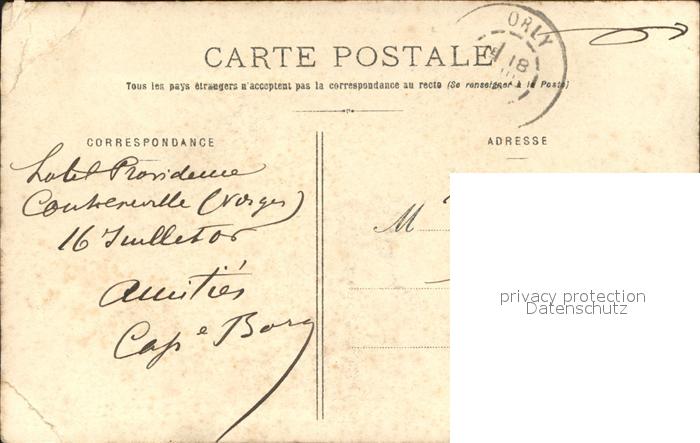 ORLY
18
CARTE POSTALE
Tous les pays étrangers n'acceptent pas la correspondance au recto (Se renseigner à la Poste)
CORRESPONDANCE
ADRESSE
hotel Providence
Contrexeville (Vosges)
16 Juillet 05
M
Amitiés
Cap e Borg
privacy protection
Datenschutz